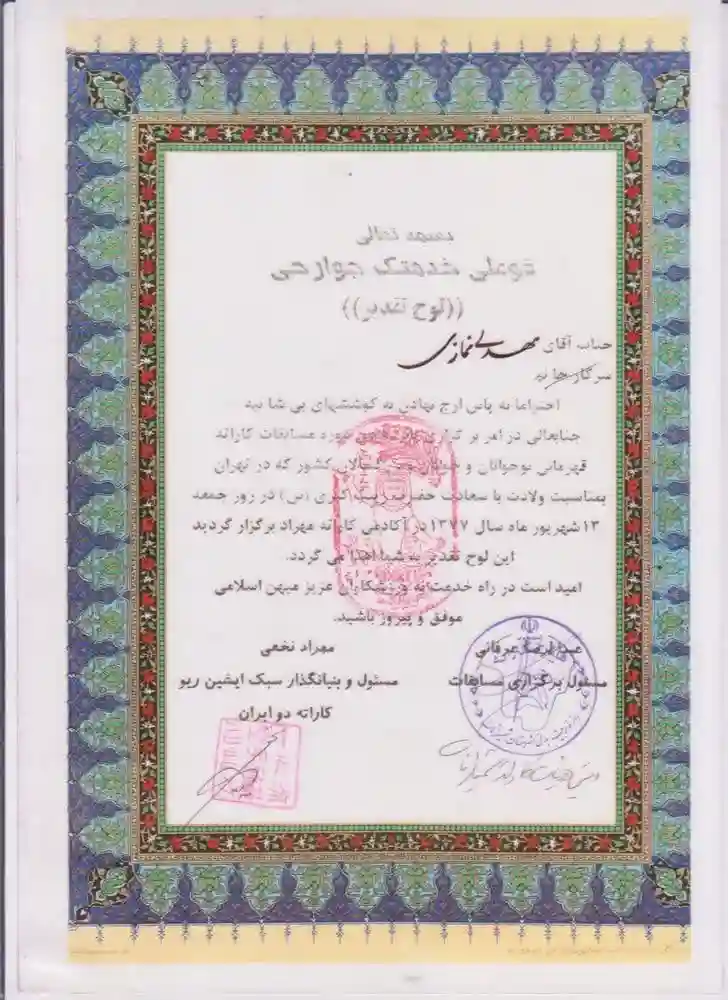 بسمه تعالی
قو علی خدمتک جوارحی
((لوح تقدیر))
جناب آقای مهدی نمازی
سرکار خانم
احتراما به پاس ارج نهادن به کوششهای بی شائبه
جنابعالی در امر برگزاری دوره مسابقات کاراته
قهرمانی نوجوانان و کشور که در تهران
بمناسبت ولادت با سعادت حضرت زینب کبری (س) در روز جمعه
۱۳ شهریور ماه سال ۱۳۷۷ در آکادمی کاراته مهراد برگزار گردید
این لوح تقدیر به شما اهدا می گردد.
امید است در راه خدمت به ورزشکاران عزیز میهن اسلامی
موفق و پیروز باشید.
عبدالرضا عرفانی
مسئول برگزاری مسابقات
مهراد نخعی
مسئول و بنیانگذار سبک ایشین ریو
کاراته دو ایران